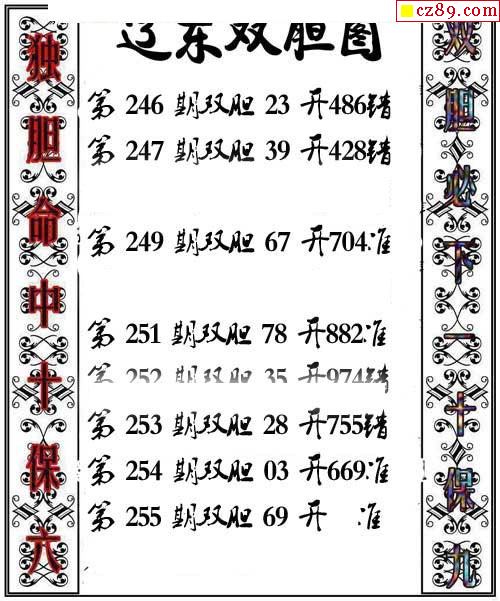 cz89.com
辽东双胆图
独胆命中十保六
第 246 期双胆 23 开486错
第 247 期双胆 39 开428错
第 249 期双胆 67 开704准
第 251 期双胆 78 开882准
第 252 期双胆 35 开974错
第 253 期双胆 28 开755错
第 254 期双胆 03 开669准
第 255 期双胆 69 开 准
双胆必下一十保九